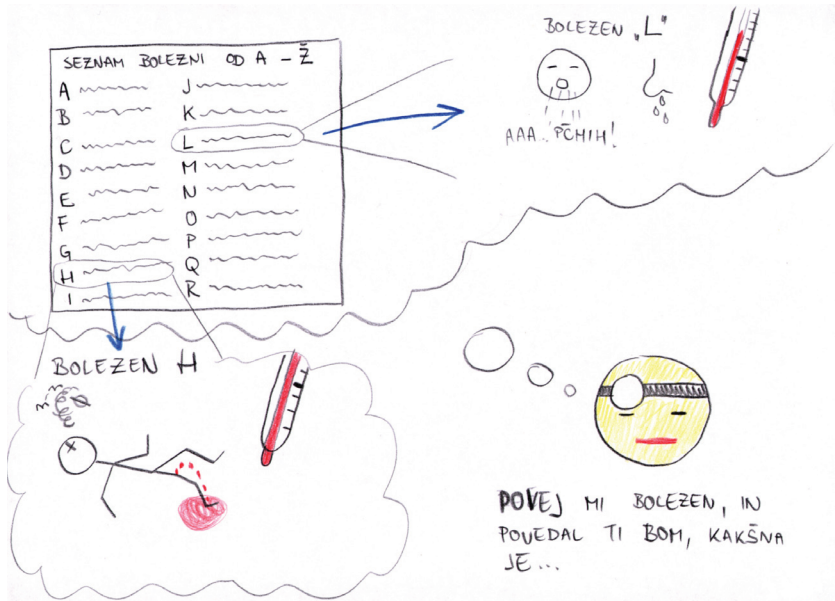 SEZNAM BOLEZNI OD A - Ž
A
B
C
D
E
F
G
H
I
J
K
L
M
N
O
P
Q
R
BOLEZEN "L"
AAA... PČHIH!
BOLEZEN H
POVEJ MI BOLEZEN, IN
POVEDAL TI BOM, KAKŠNA
JE...